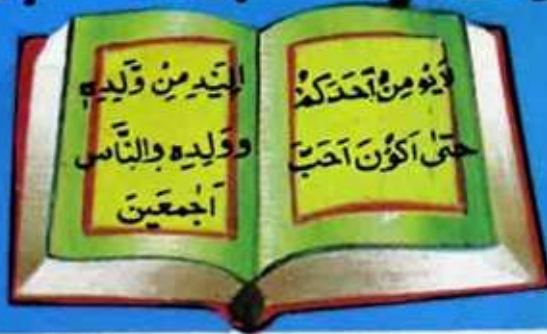 لَايُوْمِنُ اَحَدَكُمْ
حَتّٰى اَكُوْنَ اَحَبَّ
اِلَيْهِ مِنْ وَّلِدِهٖ
وَوَلِدِهٖ وَالنَّاسِ
اَجْمَعِيْنَ